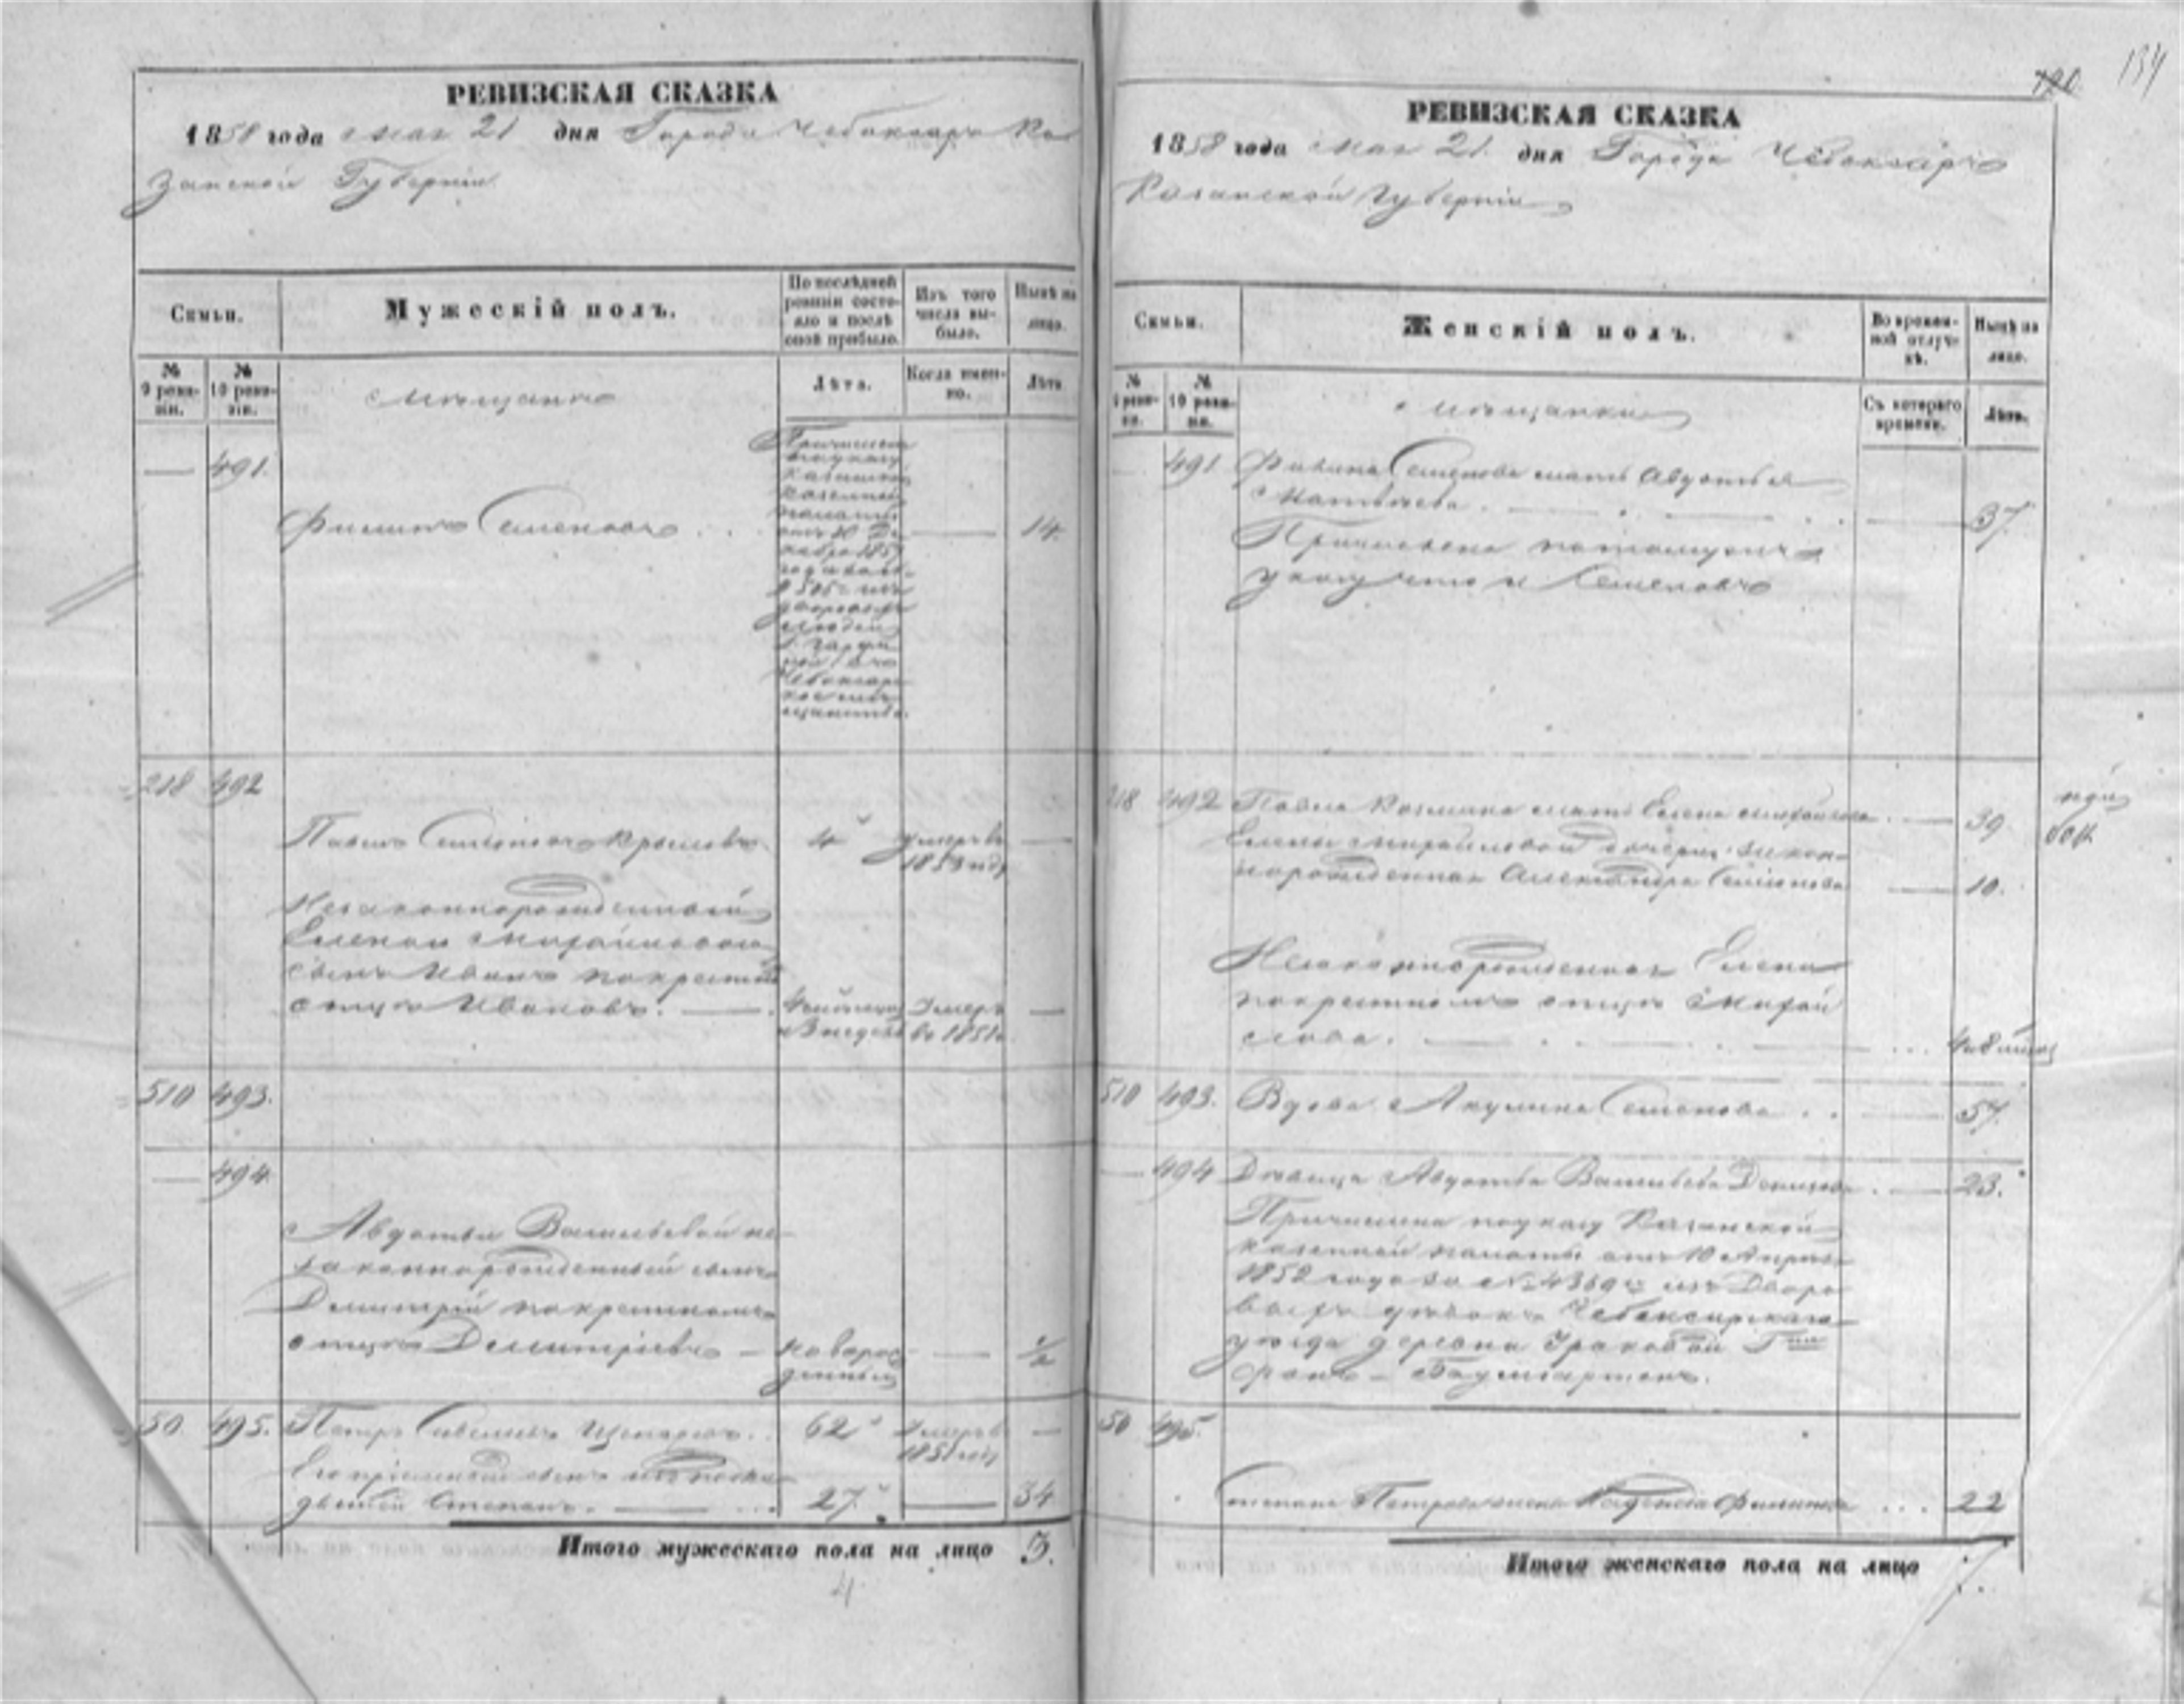 РЕВИЗСКАЯ СКАЗКА
1858 года мая 21 дня Города Чебоксаръ Ка
занской Губерніи
Семьи.
Мужескій полъ.
По послѣдней ревизіи состояло и послѣ оной прибыло.
Изъ того числа выбыло.
Нынѣ на лицо.
№ 9 ревизіи.
№ 10 ревизіи.
Лѣта.
Когда именно.
Лѣта.
Мѣщане
491.
Филипъ Семеновъ
14.
Причислен
по указу
Казанской
казенной
палаты
1857
года
дворовыхъ
людей
въ
Чебоксарс
кое мѣ
щанство.
218 492
Павелъ
4
умеръ въ
1853 году
Незаконнорожденный
Елены Михайловой
сынъ Иванъ по крестн
отцу Ивановъ.
недель
Умеръ
въ 1851
510 493.
494
Авдотьи Васильевой не-
законнорожденный сынъ
Димитрій по крестному
отцу Димитріевъ
новорож
денный
1/2
50. 495.
Петръ
62
Умеръ въ
1851 году
Его пріемный сынъ изъ подки
дышей Степанъ.
27.
34
Итого мужескаго пола на лицо 3.
4
120 134
РЕВИЗСКАЯ СКАЗКА
1858 года мая 21 дня Города Чебоксаръ
Казанской Губерніи
Семьи.
Женскій полъ.
Во временной отлучкѣ.
Нынѣ на лицо.
№ 9 ревизіи.
№ 10 ревизіи.
Съ котораго времени.
Лѣта.
Мѣщанки
491 Филипа Семенова мать Авдотья
Матвѣева
37.
Причислена по тому же
указу что и Семеновъ
218 492 Павла мать Елена Михайлова
39
Елены Михайловой дочери: закон
норожденная Александра Семенова
10.
Незаконнорожденная Елена
по крестному отцу Михай
лова.
510 493. Вдова Акулина Семенова
57.
494 Дѣвица Авдотья Васильева Денисова
23.
Причислена по указу Казанской
казенной палаты отъ 10 Апрѣля
1852 года за № 4369 изъ Дворо
выхъ дѣвокъ Чебоксарскаго
уѣзда деревни Ураковой Гжи
фонъ-Баумгартенъ.
50 495.
Степана Петрова жена Надежда Филипова
22
Итого женскаго пола на лицо 7.